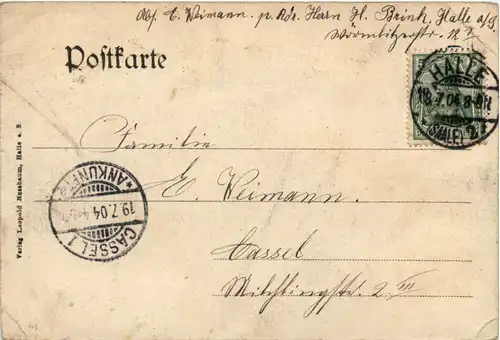 Abs. E. Weimann. p. Adr. Herrn H. Brink. Halle a/S.
Wörmlitzerstr. 12 I
Postkarte
HALLE
18.7.04. 8-9N
(SAALE) 2
Familie
E. Weimann.
Cassel
III
Verlag Leopold Nussbaum, Halle a. S.
*ANKUNFT*
19.7.04.
CASSEL 1